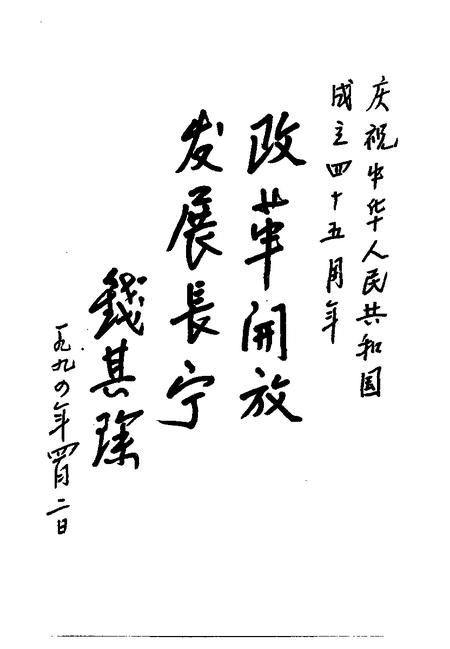 庆祝中华人民共和国
成立四十五周年
改革開放
发展長宁
錢其琛
一九九四年四月二日